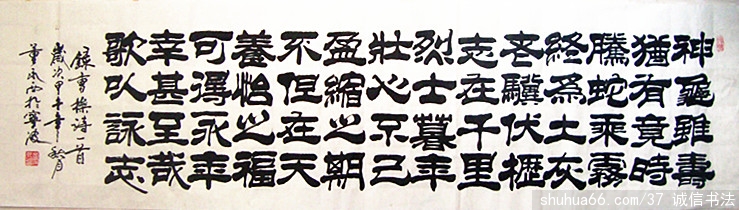 神龜雖壽
猶有竟時
騰蛇乘霧
終為土灰
老驥伏櫪
志在千里
烈士暮年
壯心不已
盈縮之期
不但在天
養怡之福
可得永年
幸甚至哉
歌以詠志
錄曹操詩一首
歲次甲午年秋月
董於寧波
shuhua66.com/37 诚信书法